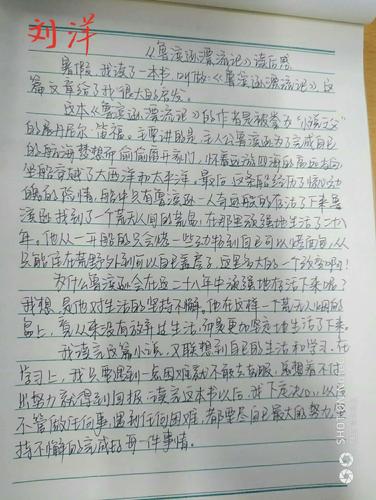 刘洋
《鲁滨逊漂流记》读后感
暑假,我读了一本书,叫做《鲁滨逊漂流记》这
篇文章给了我很大的启发。
这本《鲁滨逊漂流记》的作者是被誉为“小说之父”
的丹尼尔·笛福。主要讲的是:主人公鲁滨逊为了完成自己
的航海梦想而偷偷离开家门,怀着远游四海的高远志向,
坐船穿越了大西洋和太平洋。最后,这条船经历了惊心动
魄的险情,船中只有鲁滨逊一人奇迹般的存活了下来鲁
滨逊找到了一个荒无人间的荒岛,在那里顽强地生活了二十八
年。他从一开始的只会烧一些动物到自己可以烤面包,从
只能住在荒野外到可以自己盖房子,这里多大的一个改变啊!
为什么鲁滨逊会在这二十八年中顽强地存活下来呢?
我想,是他对生活的坚持不懈。他在这样一个荒无人烟的
岛上,从来没有放弃过生活,而是更加坚定地生活了下来。
我读完这篇小说,又联想到自己的生活和学习。在
学习上,我只要遇到一点困难就不敢去克服,总想着不付
出努力就得到回报。读完这本书以后,我下定决心,以后
不管做任何事,遇到任何困难,都要尽自己最大的努力,坚
持不懈的完成好每一件事情。
SHOT ON